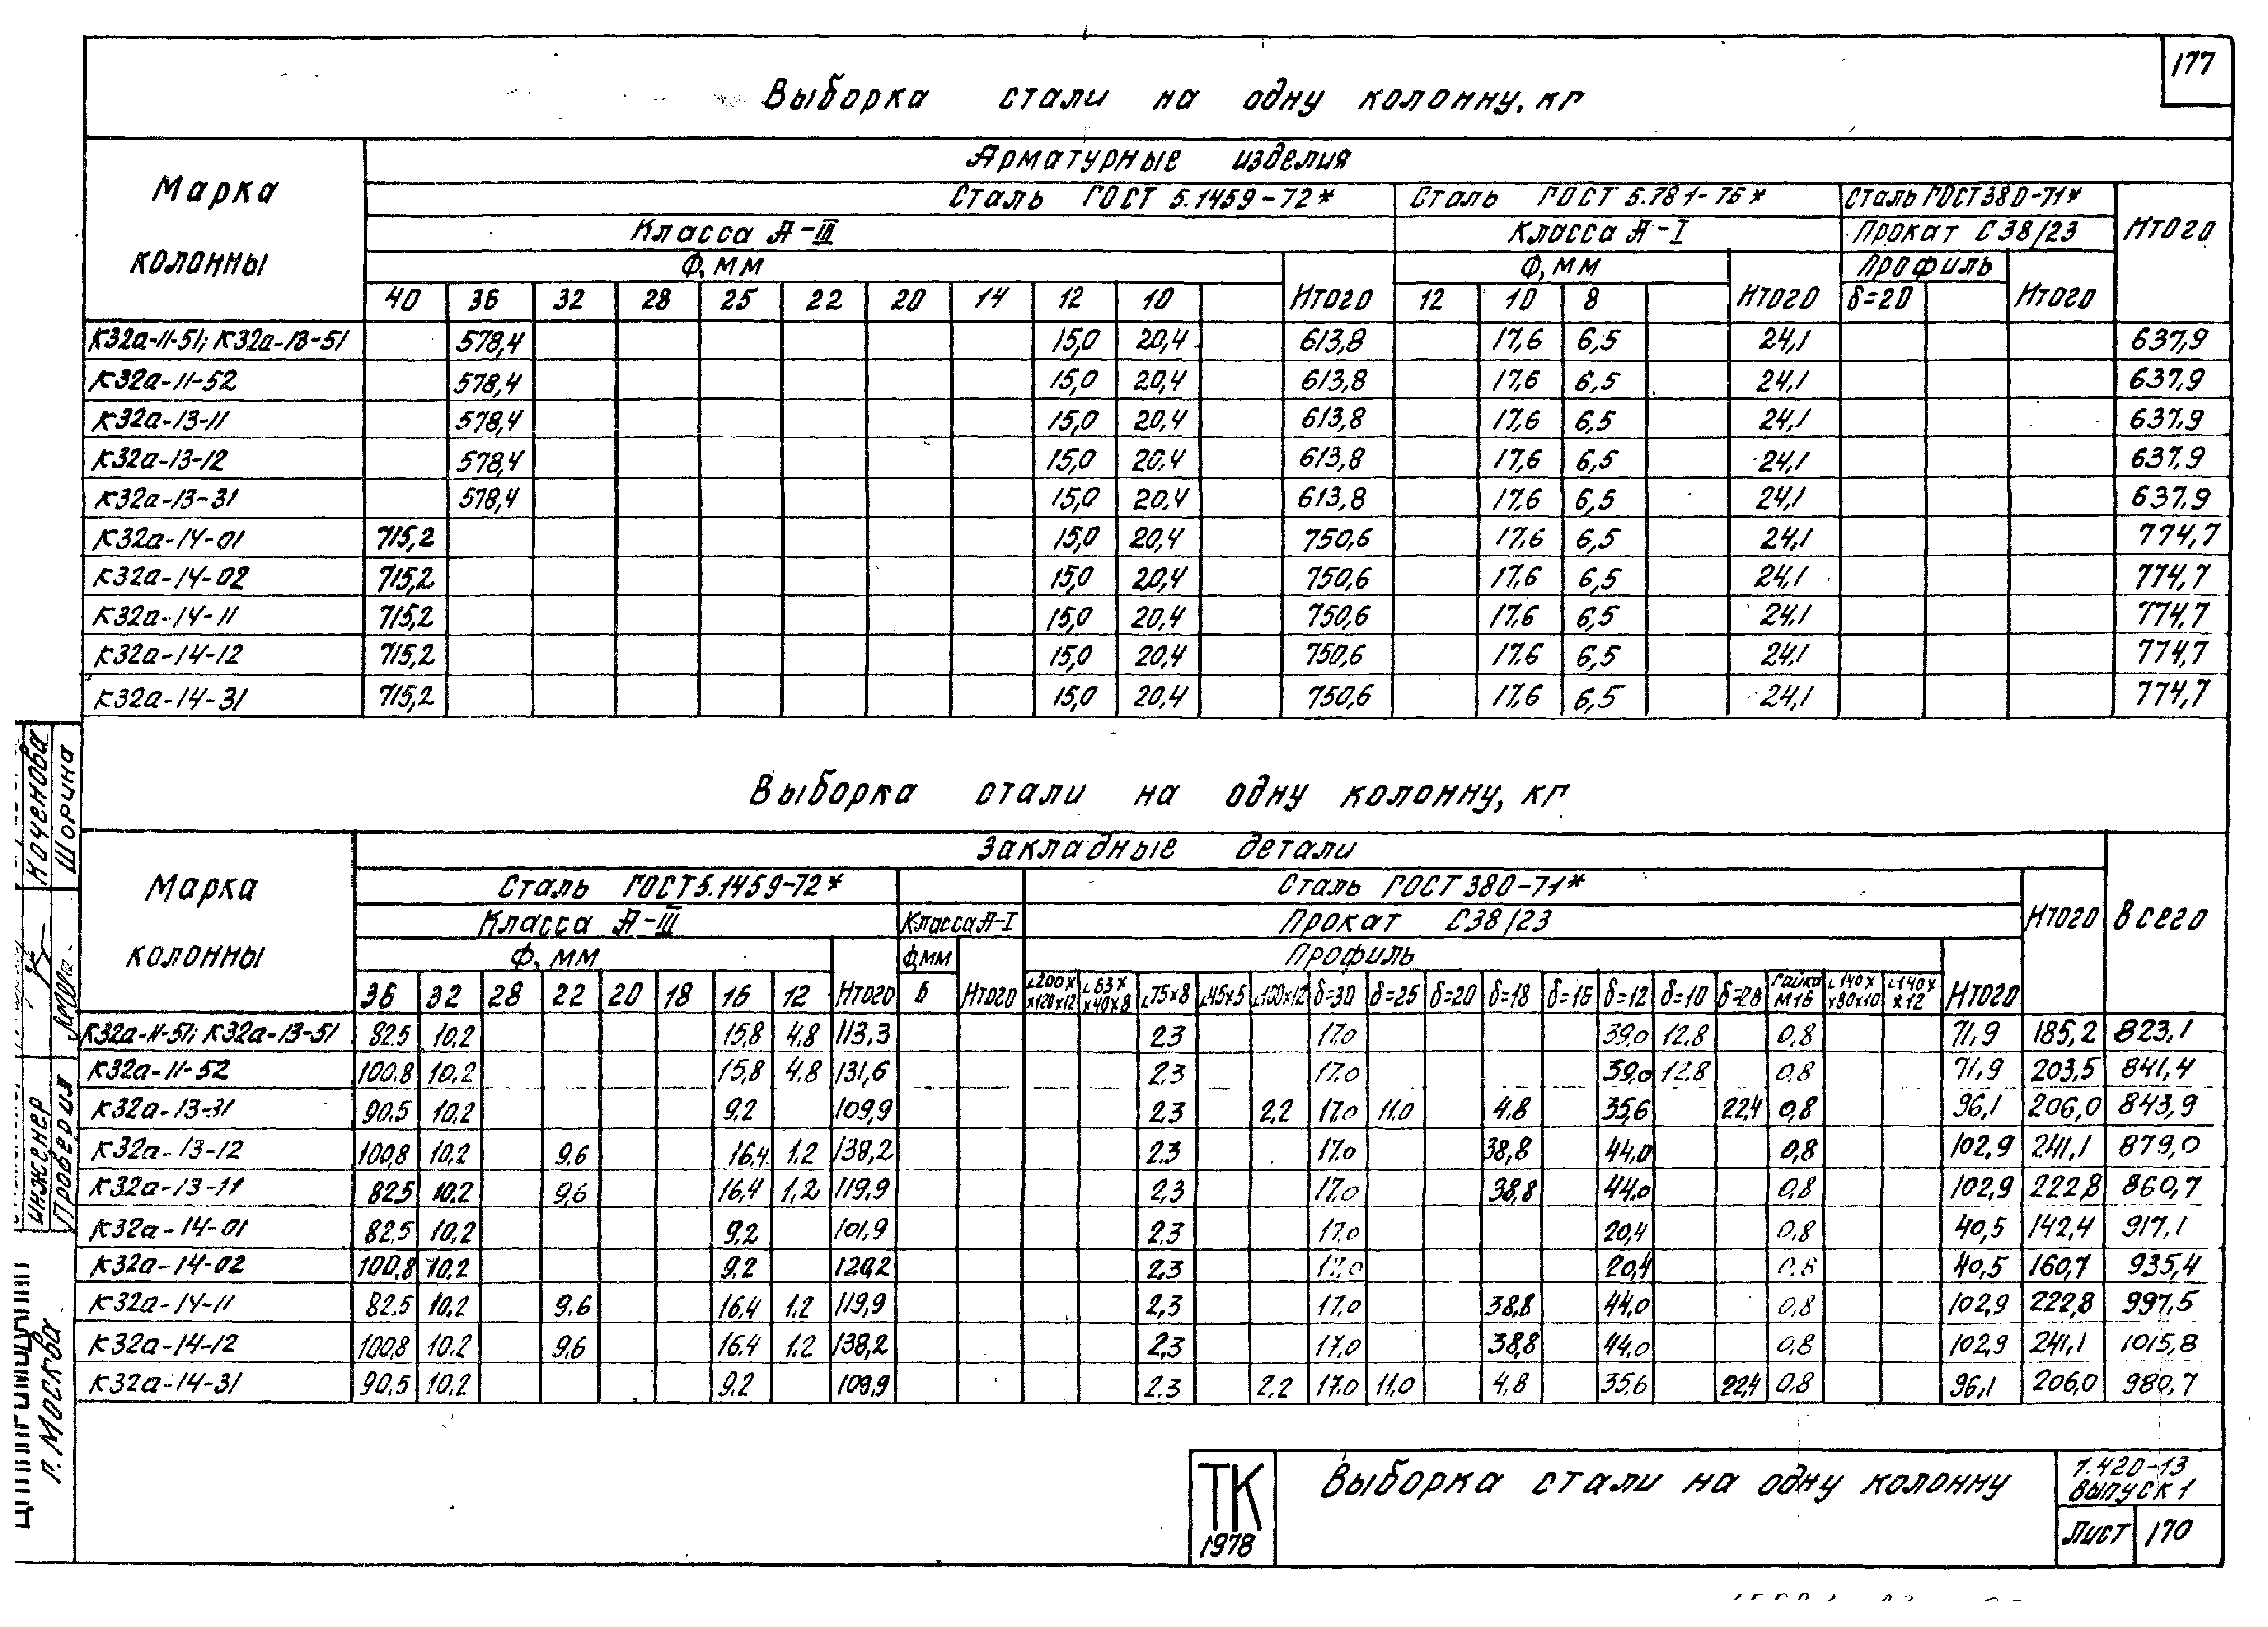 177
Выборка стали на одну колонну, кг
Марка колонны
Арматурные изделия
Сталь ГОСТ 5.1459-72* Сталь ГОСТ 5.781-75* Сталь ГОСТ 380-71* Итого
Класса А-III Класса А-I Прокат С38/23
Ф, мм Итого Ф, мм Итого Профиль Итого
40 36 32 28 25 22 20 14 12 10 12 10 8 δ=20
К32а-11-51; К32а-13-51 578,4 15,0 20,4 613,8 17,6 6,5 24,1 637,9
К32а-11-52 578,4 15,0 20,4 613,8 17,6 6,5 24,1 637,9
К32а-13-11 578,4 15,0 20,4 613,8 17,6 6,5 24,1 637,9
К32а-13-12 578,4 15,0 20,4 613,8 17,6 6,5 24,1 637,9
К32а-13-31 578,4 15,0 20,4 613,8 17,6 6,5 24,1 637,9
К32а-14-01 715,2 15,0 20,4 750,6 17,6 6,5 24,1 774,7
К32а-14-02 715,2 15,0 20,4 750,6 17,6 6,5 24,1 774,7
К32а-14-11 715,2 15,0 20,4 750,6 17,6 6,5 24,1 774,7
К32а-14-12 715,2 15,0 20,4 750,6 17,6 6,5 24,1 774,7
К32а-14-31 715,2 15,0 20,4 750,6 17,6 6,5 24,1 774,7
Выборка стали на одну колонну, кг
Марка колонны
Закладные детали
Сталь ГОСТ 5.1459-72* Сталь ГОСТ 380-71* Итого Всего
Класса А-III Класса А-I Прокат С38/23
Ф, мм Итого Ф,мм Итого Профиль Итого
36 32 28 22 20 18 16 12 6 ∟200х х120х12 ∟63х х40х8 ∟75х8 ∟45х5 ∟100х12 δ=30 δ=25 δ=20 δ=18 δ=16 δ=12 δ=10 δ=28 Гайка М16 ∟140х х80х10 ∟140х х12
К32а-11-51; К32а-13-51 82.5 10.2 15,8 4.8 113.3 2.3 17.0 39.0 12.8 0,8 71,9 185,2 823,1
К32а-11-52 100.8 10.2 15,8 4.8 131,6 2.3 17.0 39.0 12.8 0.8 71,9 203,5 841,4
К32а-13-31 90.5 10.2 9.2 109,9 2.3 2,2 17.0 11.0 4.8 35,6 22.4 0,8 96,1 206,0 843,9
К32а-13-12 100,8 10.2 9.6 16,4 1.2 138,2 2.3 17.0 38,8 44.0 0,8 102,9 241,1 879,0
К32а-13-11 82.5 10.2 9,6 16,4 1,2 119.9 2,3 17.0 38,8 44.0 0.8 102,9 222,8 860,7
К32а-14-01 82.5 10.2 9,2 101,9 2.3 17.0 20,4 0.8 40,5 142,4 917,1
К32а-14-02 100,8 10.2 9.2 120,2 2,3 17.0 20,4 0.8 40,5 160,7 935,4
К32а-14-11 82.5 10.2 9.6 16,4 1.2 119,9 2,3 17.0 38,8 44.0 0,8 102,9 222,8 997,5
К32а-14-12 100,8 10.2 9.6 16.4 1.2 138,2 2,3 17.0 38,8 44.0 0.8 102,9 241,1 1015,8
К32а-14-31 90,5 10.2 9.2 109,9 2.3 2,2 17.0 11.0 4.8 35,6 22,4 0.8 96,1 206,0 980,7
Коченова
Шорина
инженер
Проверил
г. Москва
ТК
1978
Выборка стали на одну колонну
1.420-13
Выпуск 1
Лист 170